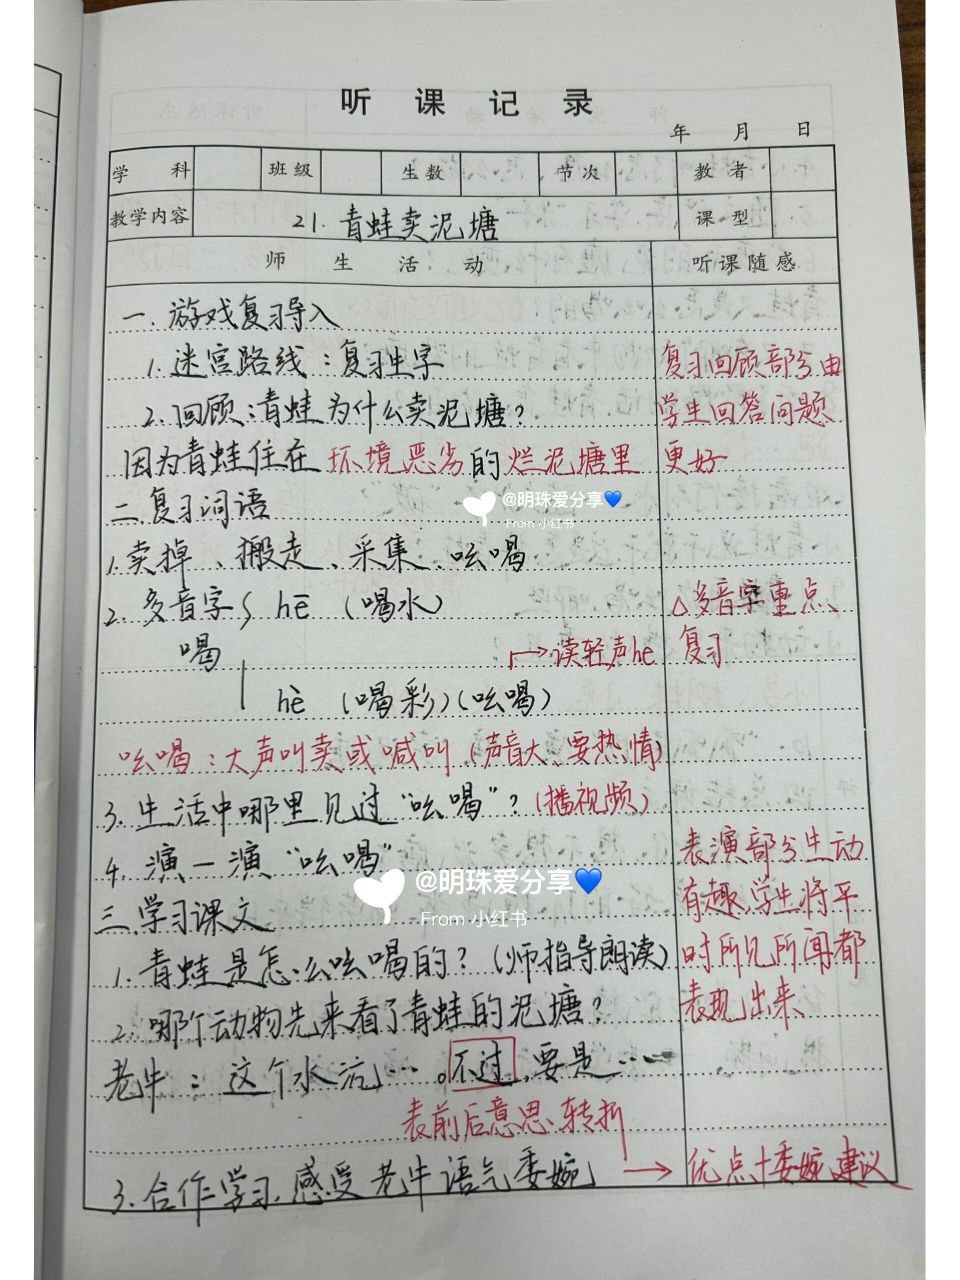 听课记录
年 月 日
学科 班级 生数 节次 教者
教学内容 21. 青蛙卖泥塘 课型
师生活动 听课随感
一. 游戏复习导入
1. 迷宫路线：复习生字
复习回顾部分由
2. 回顾：青蛙为什么卖泥塘？
学生回答问题
因为青蛙住在环境恶劣的烂泥塘里
更好
@明珠爱分享💙
From 小红书
二. 复习词语
1. 卖掉、搬走、采集、吆喝
2. 多音字 hē （喝水）
△多音字重点、
喝
→读轻声he
复习
hè （喝彩）（吆喝）
吆喝：大声叫卖或喊叫（声音大、要热情）
3. 生活中哪里见过“吆喝”？（播视频）
4. 演一演“吆喝”
表演部分生动
@明珠爱分享💙
From 小红书
有趣，学生将平
三. 学习课文
1. 青蛙是怎么吆喝的？（师指导朗读）
时所见所闻都
2. 哪个动物先来看了青蛙的泥塘？
表现出来
老牛：这个水坑…。不过，要是…
表前后意思转折
3. 合作学习. 感受老牛语气委婉
→优点+委婉建议